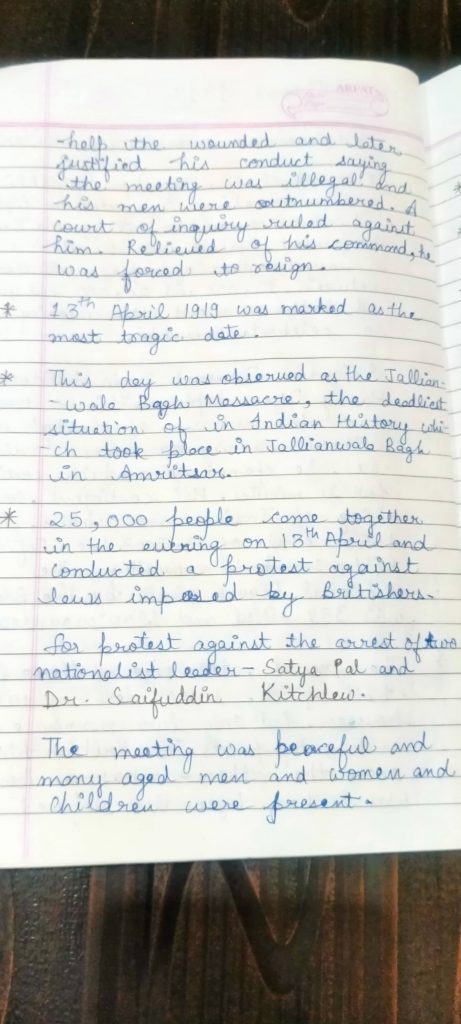 ARPAT
-help the wounded and later
justified his conduct saying
the meeting was illegal and
his men were outnumbered. A
court of inquiry ruled against
him. Relieved of his command, he
was forced to resign.
* 13th April 1919 was marked as the
most tragic date.
* This day was observed as the Jallian-
-wala Bagh Massacre, the deadliest
situation of in Indian History whi-
-ch took place in Jallianwala Bagh
in Amritsar.
* 25,000 people come together
in the evening on 13th April and
conducted a protest against
laws imposed by Britishers.
for protest against the arrest of two
nationalist leader - Satya Pal and
Dr. Saifuddin Kitchlew.
The meeting was peaceful and
many aged men and women and
children were present.